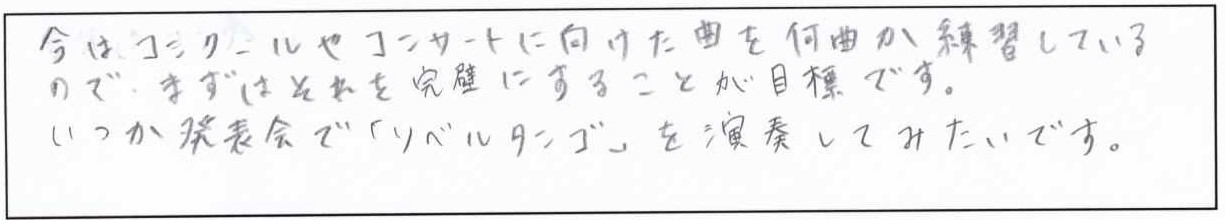 今はコンクールやコンサートに向けた曲を何曲か練習している
ので、まずはそれを完璧にすることが目標です。
いつか発表会で「リベルタンゴ」を演奏してみたいです。